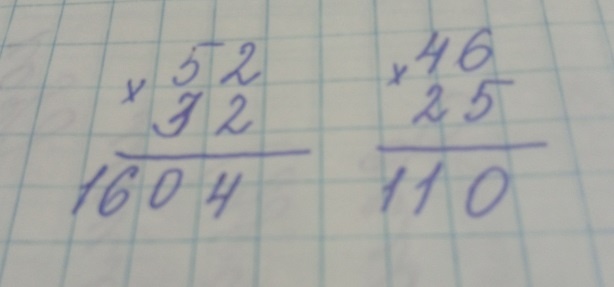 × 52
32
1604
× 46
25
110